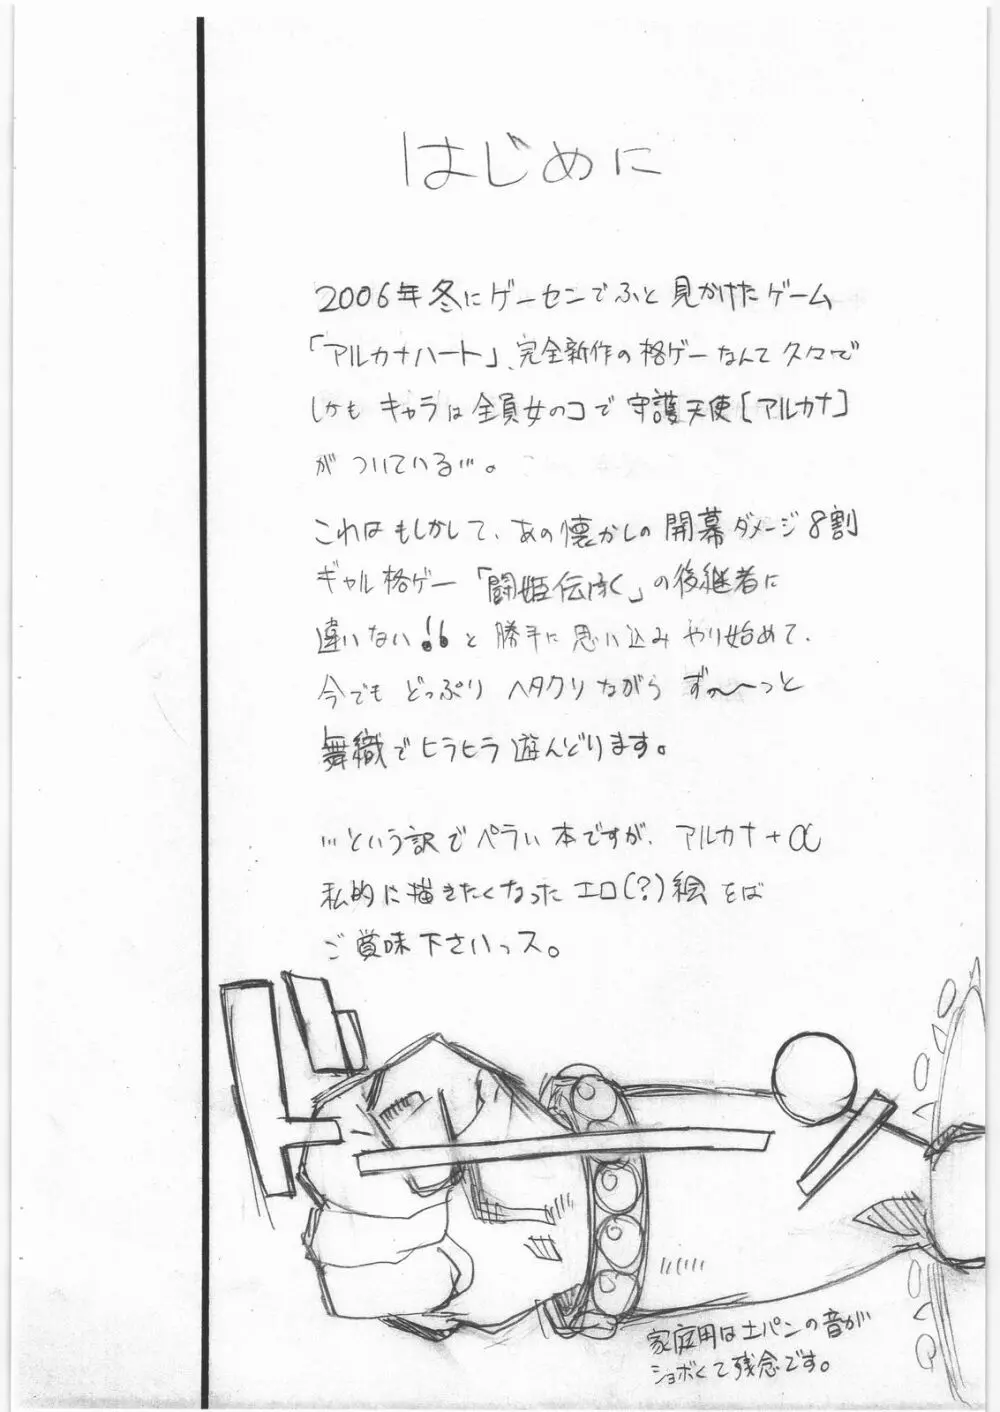 はじめに
2006年冬にゲーセンでふと見かけたゲーム
「アルカナハート」、完全新作の格ゲーなんて久々で
しかもキャラは全員女のコで守護天使[アルカナ]
がついている…。
これはもしかして、あの懐かしの開幕ダメージ8割
ギャル格ゲー「闘姫伝承」の後継者に
違いない!!と勝手に思い込みやり始めて、
今でもどっぷりヘタクソながらず〜〜っと
舞織でヒラヒラ遊んどります。
…という訳でペラい本ですが、アルカナ+α
私的に描きたくなったエロ(?)絵をば
ご賞味下さいっス。
家庭用は土パンの音が
ショボくて残念です。